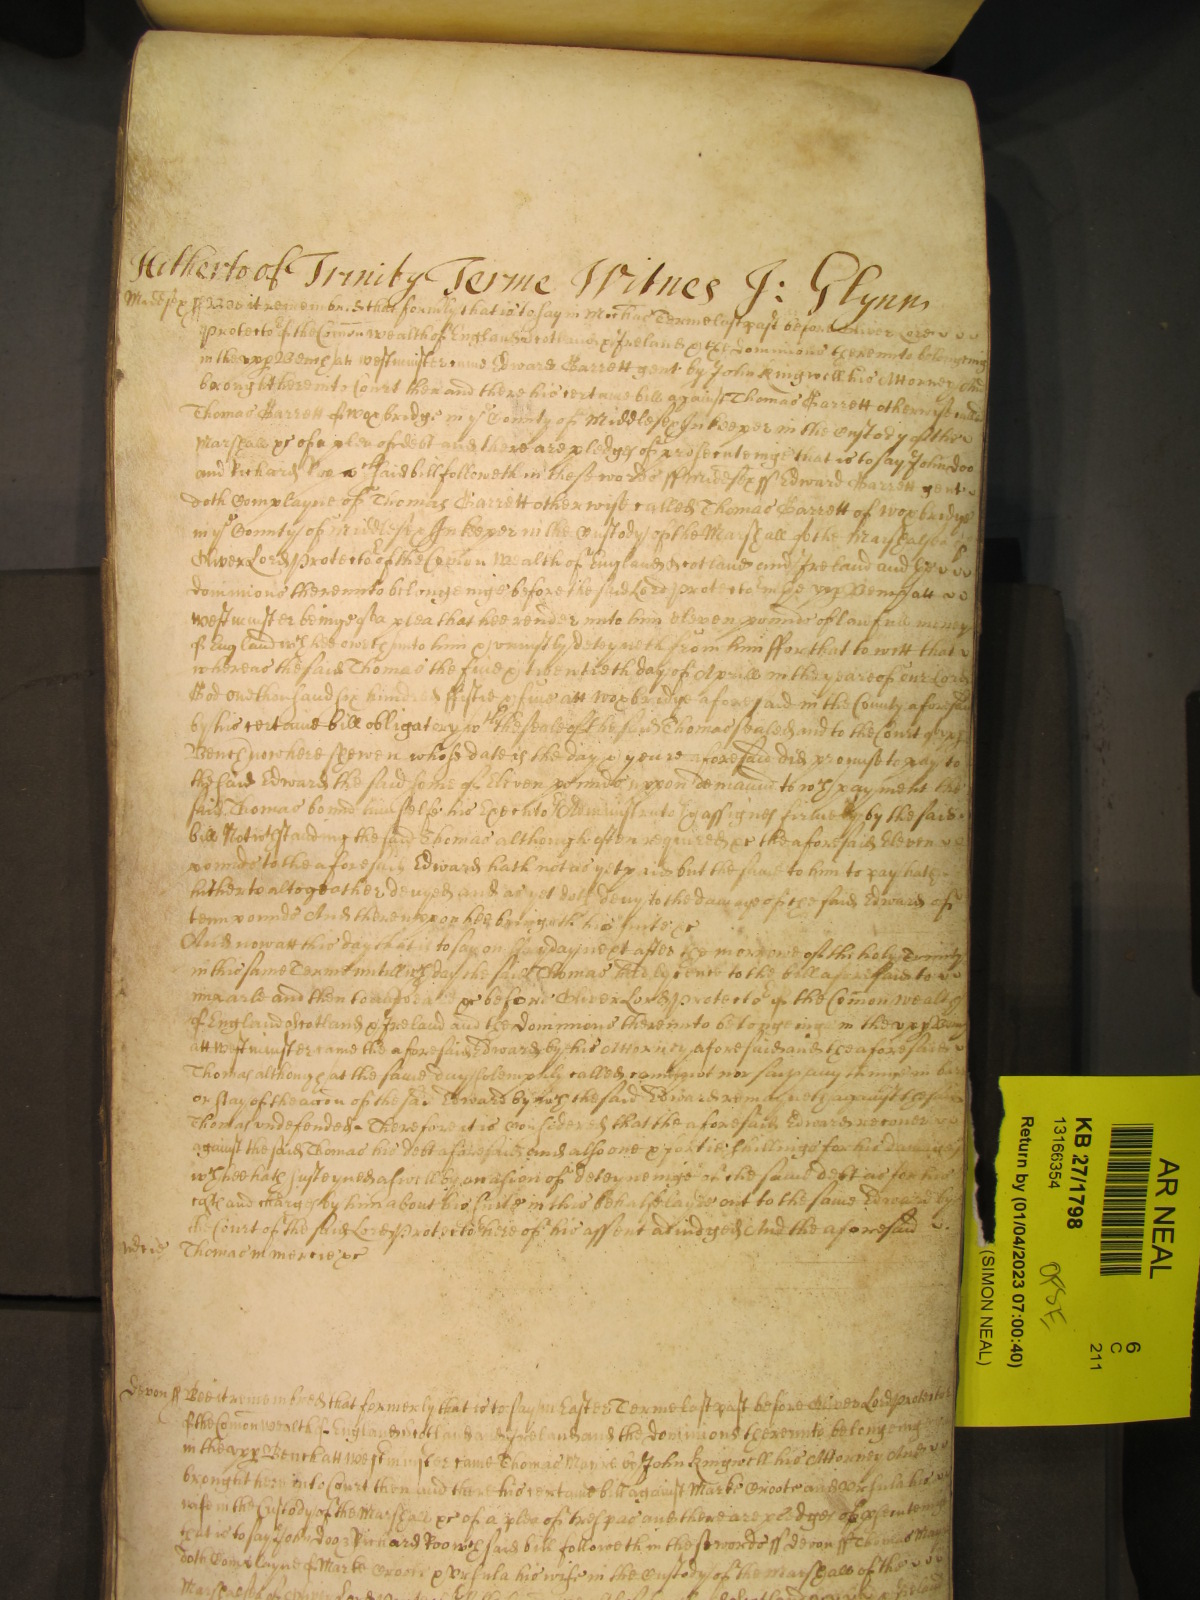 Hitherto of Trinity Terme Witnes J: Glynn
Midd'sex ff Bee it remembred that formerly that is to say in Mich'as Terme last past before Oliver Lord
Protector of the Com'on wealth of England Scotland & Ireland & the dominions thereunto belongeing
in the upp Bench att Westminster came Edward Garrett gent by John Kingwell his Attorney And
brought here into Court then and there his certaine bill against Thomas Garrett otherwise called
Thomas Garrett of Woxbridge in ye County of Middlesex Inkeeper in the Custody of the
Marshall &c of a plea of debt and there are pledges of prosecuteinge that is to say John doo
and Richard Roo wch said bill followeth in these words ff Middsex ff Edward Garrett gent
doth Complayne of Thomas Garrett otherwise called Thomas Garrett of Woxbridge
in ye County of Middlesex Inkeeper in the Custody of the Marshall of the Marshalsea of
Oliver Lord Protector of the Com'on Wealth of England Scotland and Ireland and the
dominions thereunto belongeinge before the said Lord Protector in the upp Bench att
Westminster beinge of a plea that hee render unto him eleven pounds of lawfull money
of England wch hee oweth unto him & uniustly deteyneth from him ffor that to witt that
whereas the said Thomas the five & twentieth day of Aprill in the yeare of our Lord
God one thousand six hundred fiftie & five att Woxbridge aforesaid in the County aforesaid
by his certaine bill obligatory wth the seale of the said Thomas sealed and to the Court of upp
Bench now here shewen whose date is the day & yeare aforesaid did promise to pay to
the said Edward the said some of Eleven pounds uppon demaund to wch payment the
said Thomas bound himselfe his Executors Administrators & assignes firmely by the said
bill Notwthstanding the said Thomas although often required &c the aforesaid Eleven
pounds to the aforesaid Edward hath not as yet paid but the same to him to pay hath
hitherto altogeather denyed and as yet doth deny to the damage of the said Edward of
tenn pounds And thereuppon hee bringeth his suite &c
And now att this day that is to say on ffryday next after the morrowe of the holy Trinity
in this same Terme untill wch day the said Thomas had lycence to the bill aforesaid to
imparle and then to answeare &c before Oliver Lord Protector of the Com'on wealth
of England Scotland & Ireland and the Dominions thereunto belongeinge in the upp Bench
att Westminster came the aforesaid Edward by his Attorney aforesaid and the aforesaid
Thomas although att the same day solempnly called came not nor say any thinge in barr
or stay of the acc'on of the said Edward by wch the said Edward remaineth against the said
Thomas undefended Therefore it is Considered that the aforesaid Edward recover
against the said Thomas his debt aforesaid and alsoe one & fortie shillings for his damages
wch hee hath susteyned aswell by occasion of deteyneinge of the same debt as for his
costs and charges by him about his suite in this behalfe layd out to the same Edward by
the Court of the said Lord Protector here of his assent adiudged And the aforesaid
Thomas in mercie &c
m'cie
Devon ff Bee it remembred that formerly that is to say in Easter Terme last past before Oliver Lord Protector
of the Com'on wealth of England Scotland and Ireland and the dominions thereunto belongeing
in the upp Bench att Westminster came Thomas by John Kingwell his Attorney And
brought here into Court then and there his certaine bill against Marke and Ursula his
wife in the Custody of the Marshall &c of a plea of trespas and there are pledges of p'secuteing
that is to say John doo & Richard Roo wch said bill followeth in these words ff Devon ff Thomas
doth Complayne of Marke & Ursula his wife in the Custody of the Marshall of the
AR NEAL
KB 27/1798
13166354
Return by (01/04/2023 07:00:40)
(SIMON NEAL)
6
C
211